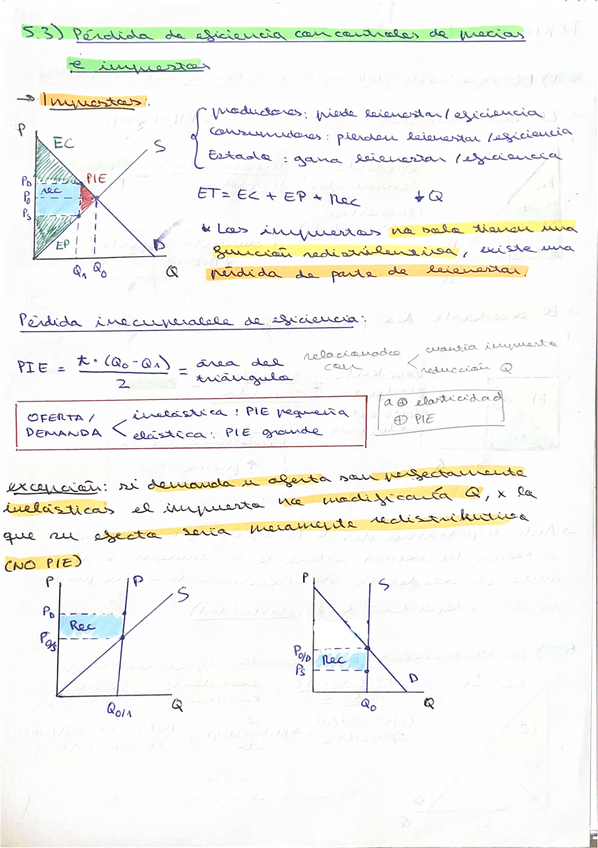 5.3) Pérdida de eficiencia con controles de precios
e impuestos
→ Impuestos:
productores: pierde bienestar/eficiencia
consumidores: pierden bienestar/eficiencia
Estado: gana bienestar/eficiencia
P
EC
S
PD
PIE
rec
P0
PS
EP
D
Q1 Q0 Q
ET = EC + EP + Rec ↓Q
↳ Los impuestos no solo tienen una
función redistributiva, existe una
pérdida de parte de bienestar.
Pérdida irrecuperable de eficiencia:
PIE = t·(Q0-Q1) / 2 = área del triángulo
relacionado con
cuantía impuesto
reducción Q
OFERTA/
DEMANDA
inelástica: PIE pequeña
elástica: PIE grande
a ⊕ elasticidad
⊕ PIE
excepción: si demanda u oferta son perfectamente
inelásticas el impuesto no modificaría Q, x lo
que su efecto sería meramente redistributivo
(NO PIE)
P
D
S
PD
Rec
P0/S
Q0/1
Q
P
S
P0/D
Rec
PS
D
Q0
Q